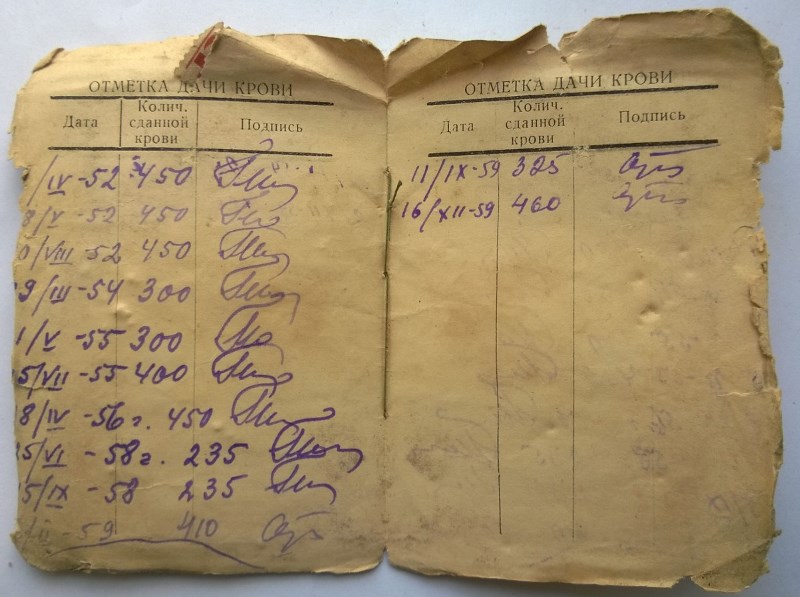 ОТМЕТКА ДАЧИ КРОВИ
Дата Колич. сданной крови Подпись
/IV -52 450
8/V -52 450
0/VIII -52 450
9/III -54 300
1/V -55 300
5/VII -55 400
8/IV -56 г. 450
5/VI -58 г. 235
5/IX -58 235
-59 410
ОТМЕТКА ДАЧИ КРОВИ
Дата Колич. сданной крови Подпись
11/IX-59 325
16/XII-59 460